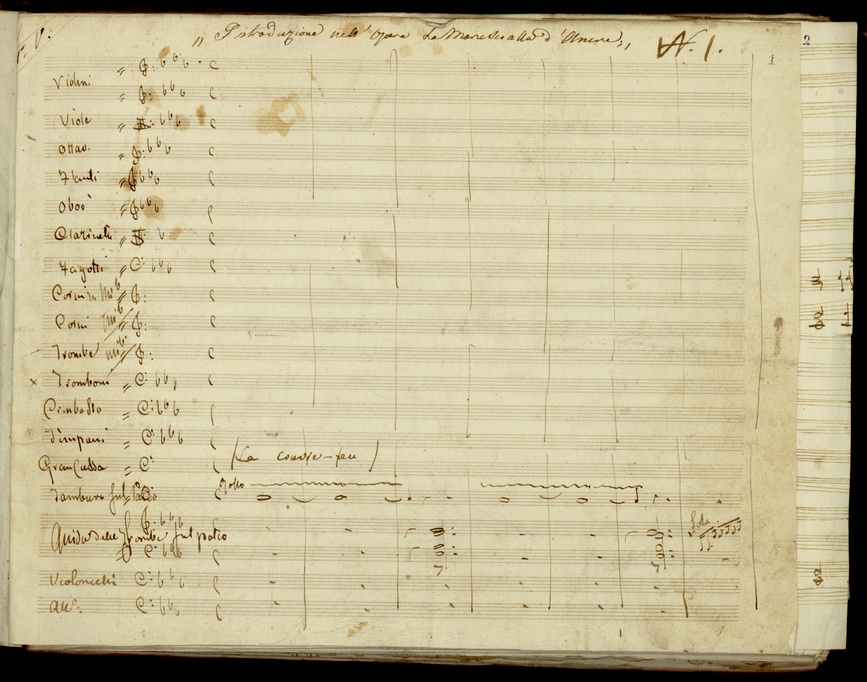 „ Introduzione nell' Opera La Marescialla d'Ancre „ N. 1.
1
Violini
Viole
Ottav.
Flauti
Oboè
Clarinetti
Fagotti
Corni in Mib
Corni Mib
Trombe Mib
x Tromboni
Cimbasso
Timpani
Gran Cassa (Le couvre-feu)
Tamburo sul palco
Guida delle Trombe sul palco Solo
Violoncelli